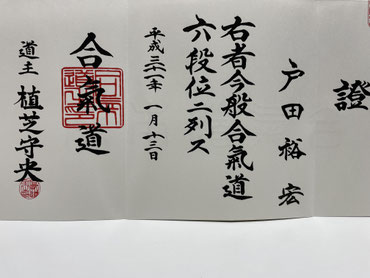 證
戸田裕宏
右者今般合氣道
六段位ニ列ス
平成三十一年一月十三日
合氣道
道主 植芝守央